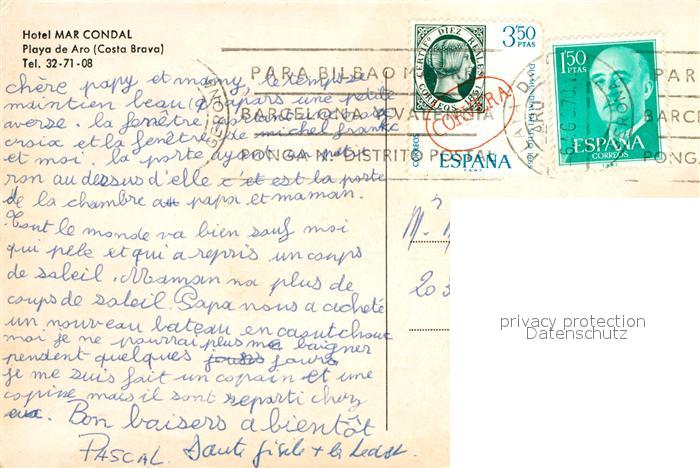 Hotel MAR CONDAL
Playa de Aro (Costa Brava)
Tel. 32-71-08
chère papy et mamy, le temps se
maintien beau (à part une petite
averse. la fenêtre
croix et la fenêtre de michel franck
et moi. la porte ayant un petit
ron au dessus d'elle c'et est la porte
de la chambre a papa et maman.
Tout le monde va bien sauf moi
qui pèle et qui a repris un coups
de soleil. Maman na plus de
coups de soleil. Papa nous a acheté
un nouveau bateau en caoutchouc
moi je ne pourrai plus me baigner
pendent quelques jours jours
je me suis fait un copain et une
copine mais il sont reparti chez
eux. Bon baisers a bientôt
PASCAL.
CERTIFDO DIEZ REALES
CORREOS 1851
3,50 PTAS
CORVERA
CORREOS
ESPAÑA
DIA MUNDIAL DEL SELLO
1,50 PTS
ESPAÑA
CORREOS
GERONA
PARA BILBAO
BARCELONA VALENCIA
PONGA Nº DISTRITO POSTAL
PAR
BARCE
PONGA
M.
20
privacy protection
Datenschutz